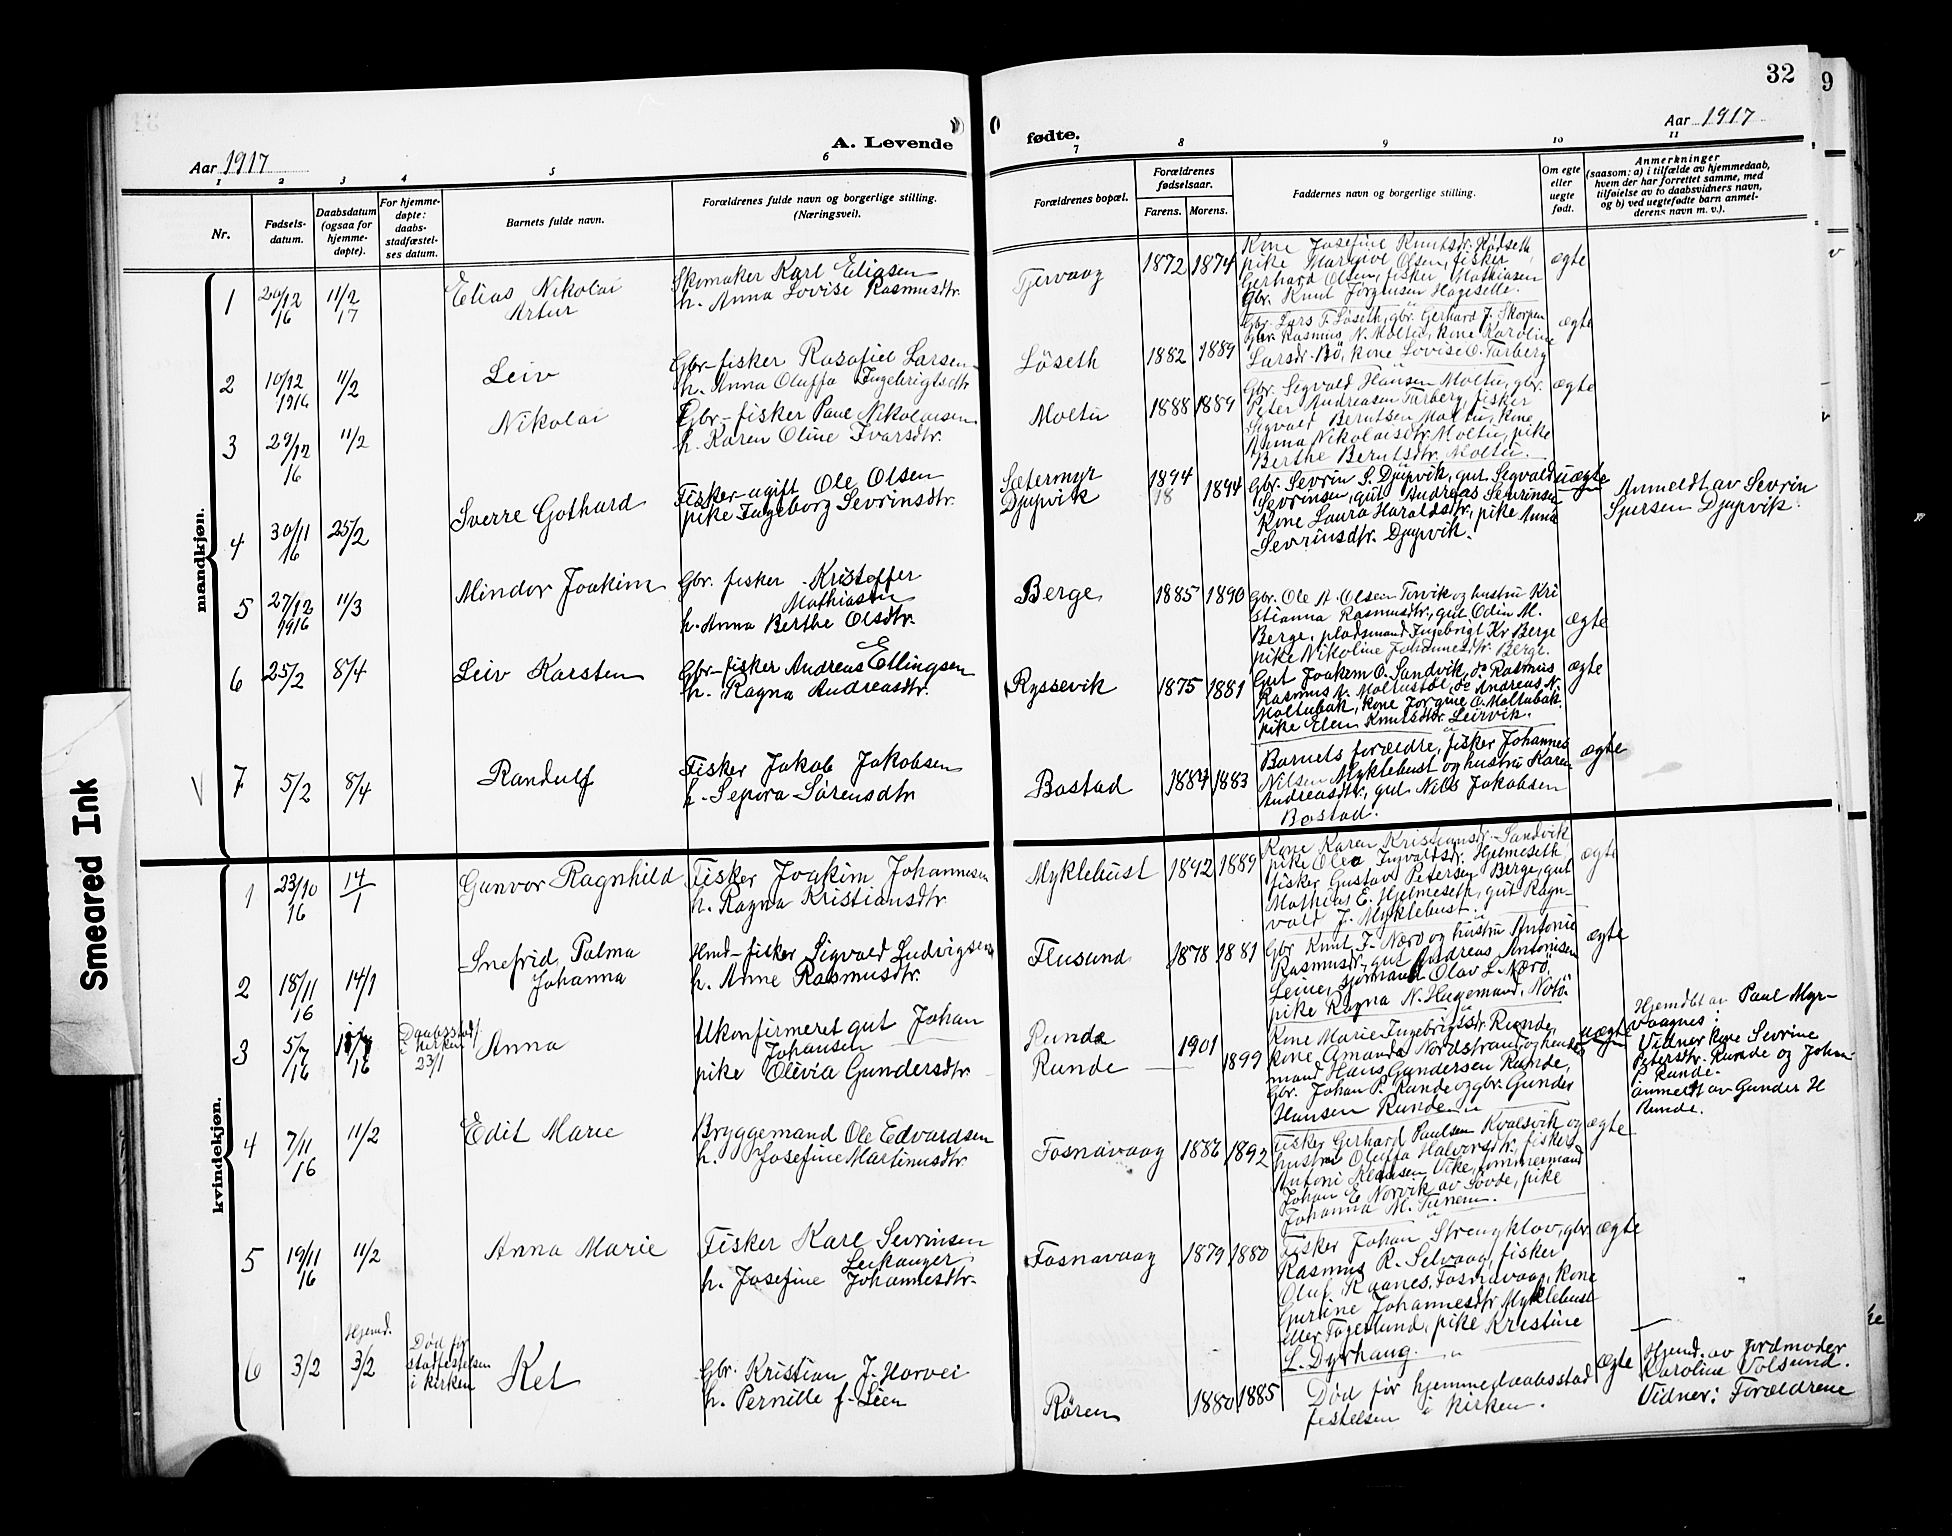 32
9
A. Levende fødte.
Aar 1917
Aar 1917
1 2 3 4 5 6 7 8 9 10 11
Nr.
Fødsels-
datum.
Daabsdatum
(ogsaa for
hjemme-
døpte).
For hjemme-
døpte:
daabs-
stadfæstel-
ses datum.
Barnets fulde navn.
Forældrenes fulde navn og borgerlige stilling.
(Næringsvei).
Forældrenes bopæl.
Forældrenes
fødselsaar.
Farens. Morens.
Faddernes navn og borgerlige stilling.
Om egte
eller
uegte
født.
Anmerkninger
(saasom: a) i tilfælde av hjemmedaab,
hvem der har forrettet samme, med
tilføielse av to daabsvidners navn,
og b) ved uegtefødte barn anmel-
derens navn m. v.).
mandkjøn.
1
20/12
16
11/2
17
Elias Nikolai
Artur
Skomaker Karl Eliasen
h. Anna Lovise Rasmusdtr.
Tjervaag
1872 1874
Kone Josefine Knutsdr. Rødseth,
pike Margive Olsen, fisker
Gerhard Olsen, fisker Mathiasen
Gbr. Knut Jørgensen Hageselle.
ægte
2
10/12
1916
11/2
Leiv
Gbr-fisker Rasafiel Larsen
h. Anna Oluffa Ingebrigtsdtr
Löseth
1882 1889
Gbr. Lars T. Löseth, gbr. Gerhard J. Skorpen
Gbr. Rasmus N. Moltu, kone Karoline
Larsdr. Bö, kone Lovise O. Tarberg
ægte
3
29/12
16
11/2
Nikolai
Gbr-fisker Paul Nikolaisen
h. Karen Oline Ivarsdtr.
Moltu
1888 1889
Gbr. Segvald Hansen Moltu, gbr.
Peter Andreasen Tarberg, fisker
Sigvald Berntsen Moltu, kone
Anna Nikolaisdtr. Moltu, pike
Berthe Berntsdtr. Moltu.
ægte
4
30/11
16
25/2
Sverre Gothard
Fisker-ugift Ole Olsen
pike Ingeborg Sevrinsdtr.
Sætermyr
Djupvik
1894
18
1894
Gbr. Sevrin S. Djupvik, gut Segvald
Sevrinsen, gut Andreas Sevrinsen
Kone Laura Haraldsdtr, pike Anna
Sevrinsdtr. Djupvik.
uægte
Anmeldt av Sevrin
Sjursen Djupvik.
5
27/12
1916
11/3
Mindor Joakim
Gbr. fisker Kristoffer
Mathiasen
h. Anna Berthe Olsdtr.
Berge
1885 1890
Gbr. Ole A. Olsen Torvik og hustru Kri
stianna Rasmusdtr., gut Odin M.
Berge, pladsmand Ingebrigt Kr Berge
pike Nikoline Johannesdtr. Berge.
ægte
6
25/2
8/4
Leiv Karsten
Gbr-fisker Andreas Ellingsen
h. Ragna Andreasdtr.
Ryssevik
1875 1881
Gut Joakem O. Sandvik, do Rasmus
Rasmus A. Moltustøl, do Andreas N.
Moltubak, kone Jorgine O. Moltubak.
pike Elen Knutsdtr. Leirvik.
ægte
7
5/2
8/4
Randulf
Fisker Jakob Jakobsen
h. Sepora Sørensdtr
Bostad
1884 1883
Barnets forældre, fisker Johannes
Nilsen Myklebust og hustru Karen
Andreasdtr., gut Nils Jakobsen
Bostad.
ægte
kvindekjøn.
1
23/10
16
14
1
Gunvor Ragnhild
Fisker Joakim Johannesen
h. Ragna Kristiansdtr.
Myklebust
1892 1889
Kone Karen Kristiansdr. Sandvik
pike Olea Ingvaldsdr. Hjelmeseth
fisker Gustav Petersen Berge, gut
Mathias E. Hjelmeseth, gut Ragn-
vald J. Myklebust.
ægte
2
18/11
16
14/1
Snefrid Palma
Johanna
Hmd-fisker Sigvald Ludvigsen
h. Anne Rasmusdtr.
Flusund
1878 1881
Gbr Knut J. Nærø og hustru Antonie
Rasmusdtr, gut Andreas Antonisen
Leine, sjømand Olav L. Nærø,
pike Ragna N. Hugemand, Notø.
ægte
3
5/7
16
16
Daabsstadf
i kirken
23/1
Anna
Ukonfirmeret gut Johan
Johansen
pike Olevia Gundersdtr
Runde
Runde
1901
1899
Kone Marie Ingebrigtsdr. Runde,
kone Amanda Nordstrand og
mand Hans Gundersen Runde,
Gbr. Johan P. Runde og gbr. Gunder
Hansen Runde
uægte
Hjemdbt av Paul Myr-
vaagnes
Vidner kone Sevrine
Petersdtr. Runde og Johan
P. Runde.
anmeldt av Gunder H
Runde.
4
7/11
16
11/2
Edit Marie
Bryggemand Ole Edvardsen
h. Josefine Martinusdtr
Fosnavaag
1886 1892
Fisker Gerhard Paulsen Kvalsvik og
hustru Oluffa Halvorsdtr. fisker
Antoni Klausen Vike, tømmermand
Johan E. Norvik av Søvde, pike
Johanna M. Tunem.
ægte
5
19/11
16
11/2
Anna Marie
Fisker Karl Sevrinsen
Leikanger
h. Josefine Johannesdtr.
Fosnavaag
1879 1880
Fisker Johan Strengklov, gbr.
Rasmus R. Selvaag, fisker
Oluf Raanes, Fosnavaag, kone
Gurine Johannesdtr Myklebust
eller Fagerlund, pike Kristine
L. Dyrhaug.
ægte
6
3/2
Hjemd.
3/2
Død før
stadfestelsen
i kirken
Ket
Gbr. Kristian J. Horvei
h. Pernille f. Leen
Røren
1880 1885
Død før hjemmedaabsstad
festelsen i kirken.
ægte
Hjemd. av Jordmoder
Karolina Volsund.
Vidner: Forældrene
Smeared Ink